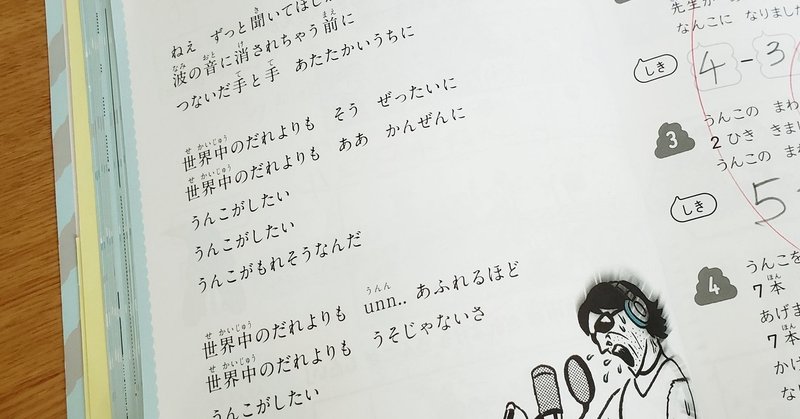 ねえ ずっと聞いてほし
波の音に消されちゃう前に
つないだ手と手 あたたかいうちに
世界中のだれよりも そう ぜったいに
世界中のだれよりも ああ かんぜんに
うんこがしたい
うんこがしたい
うんこがもれそうなんだ
世界中のだれよりも unn.. あふれるほど
世界中のだれよりも うそじゃないさ
うんこがしたい
先生が
なんこに なりました
しき 4-3
3 うんこの まわ
2ひき きまし
うんこの まわ
しき 5
4 うんこを
7本
あげま
7本
かけ
な